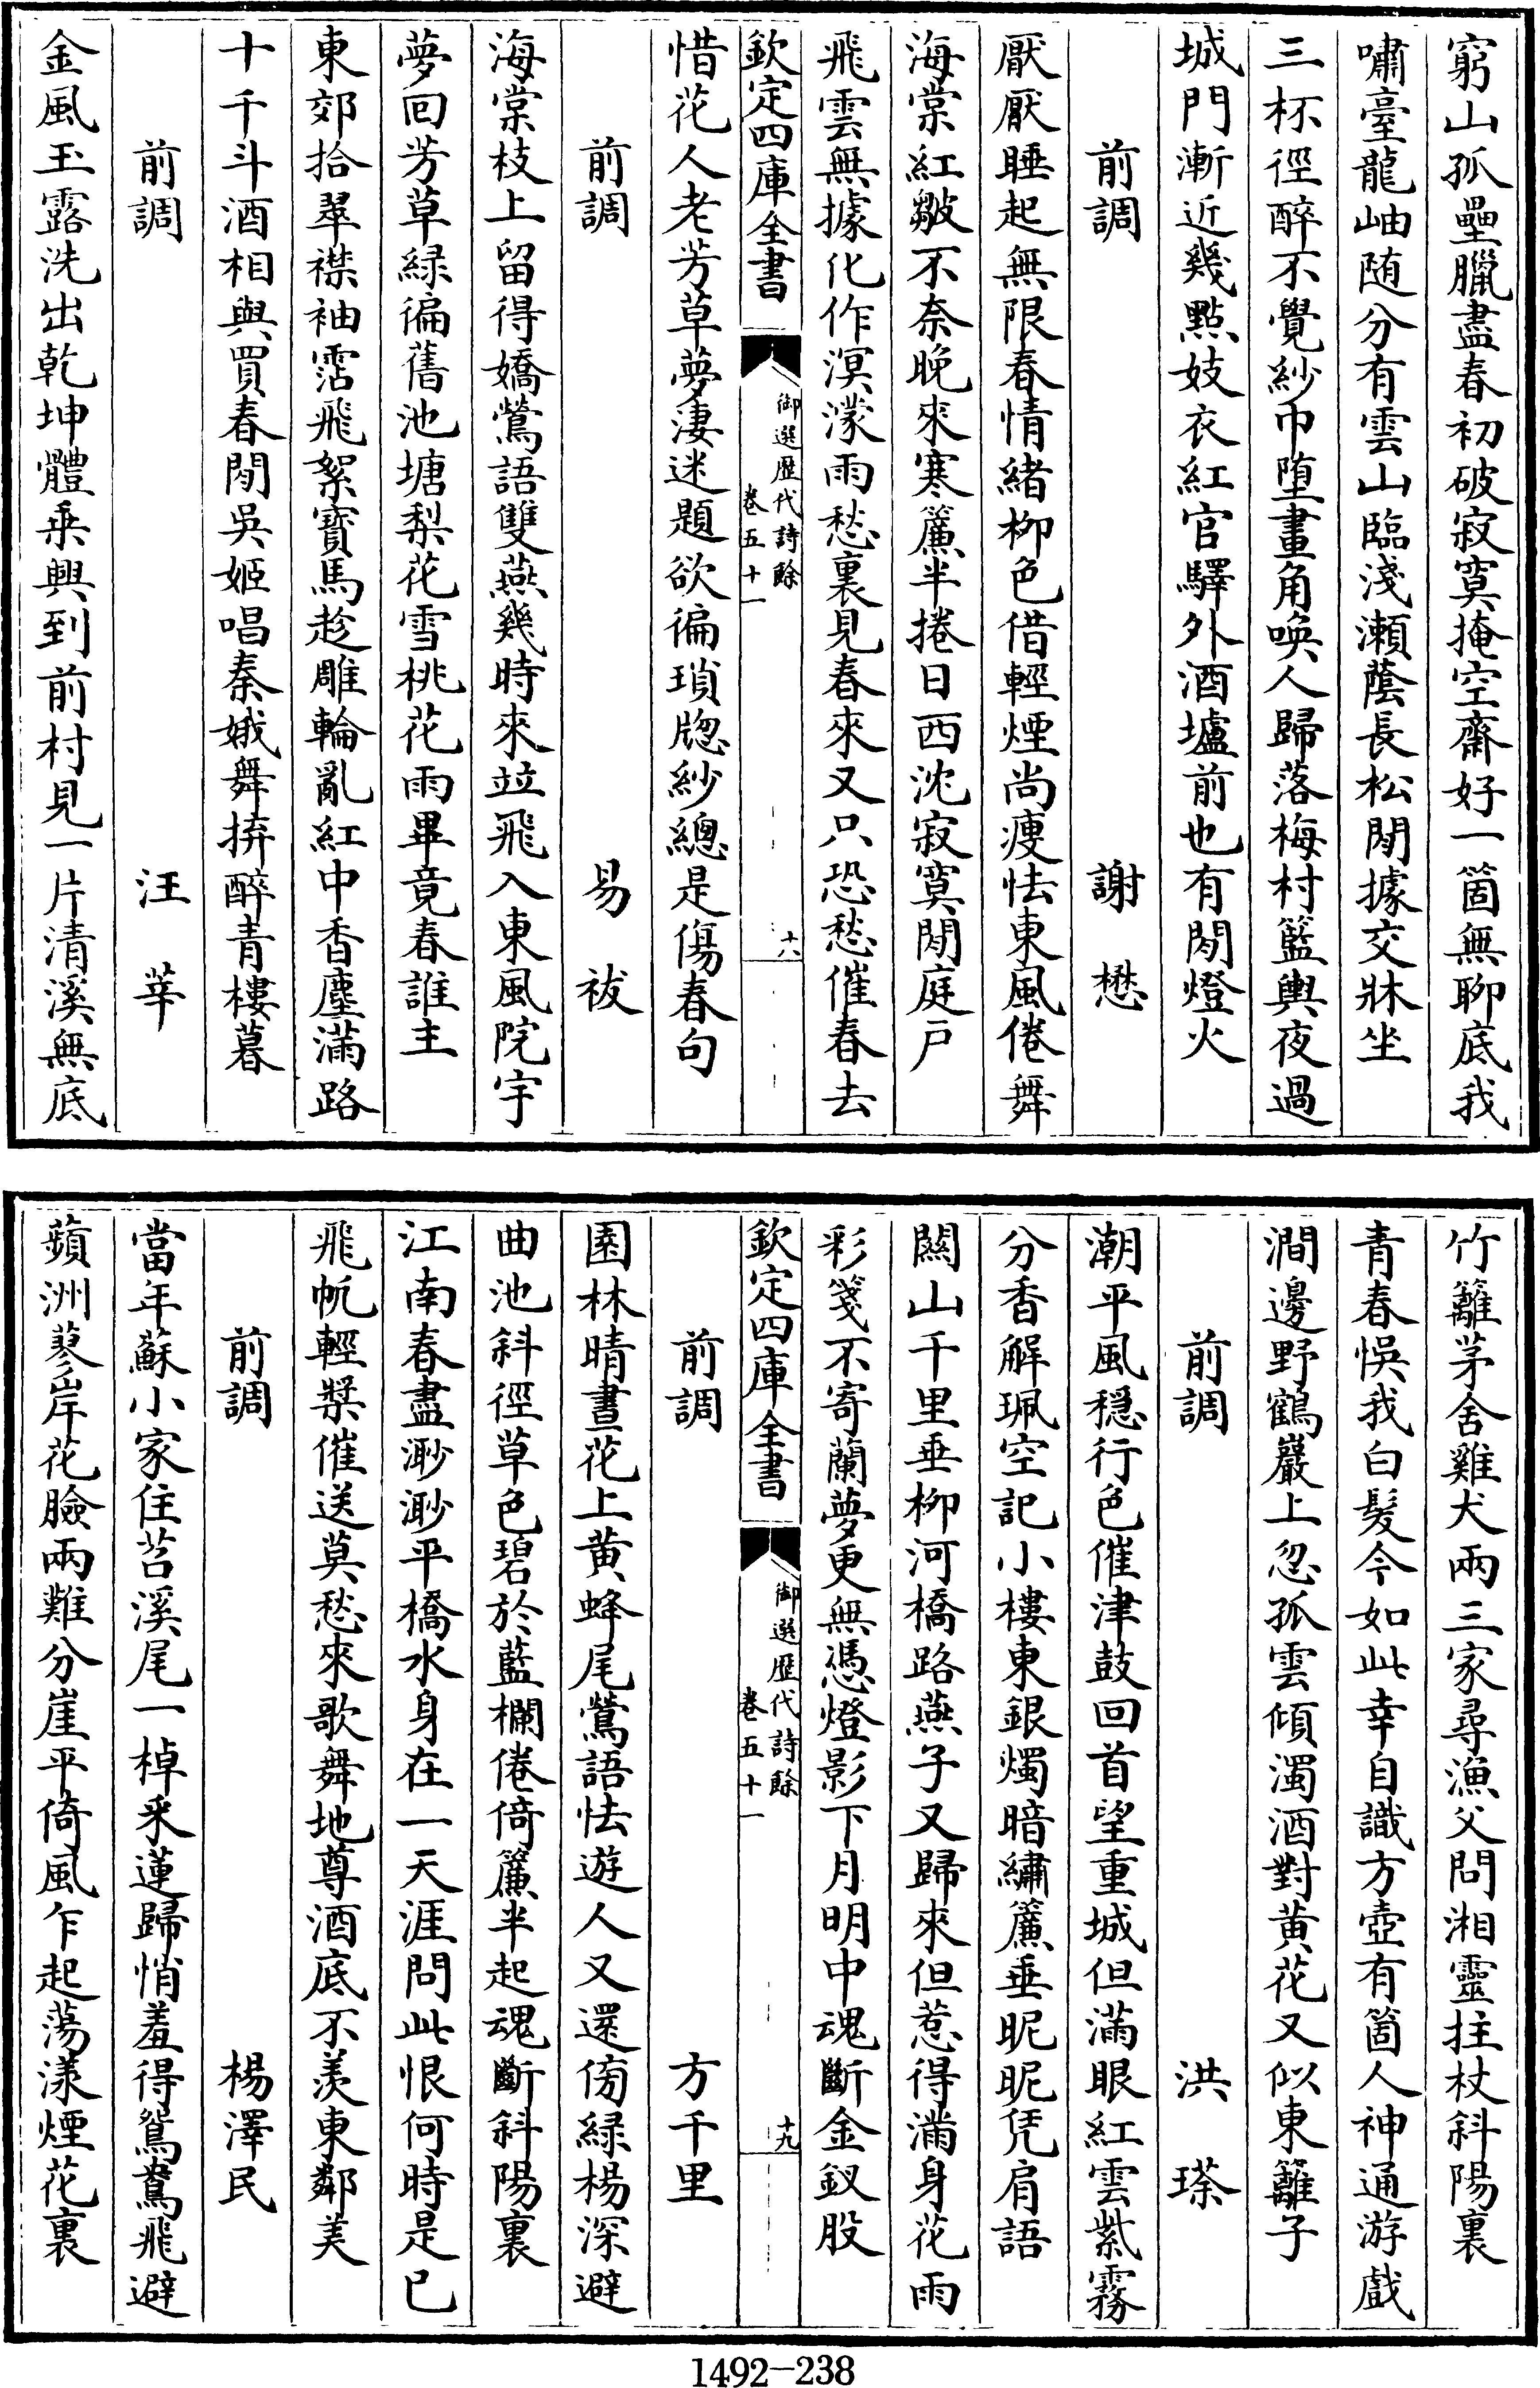 窮山孤壘臘盡春初破寂寞掩空齋好一箇無聊底我
嘯臺龍岫随分有雲山臨淺瀬蔭長松閒據交牀坐
三杯徑醉不覺紗巾墮畫角喚人歸落梅村籃輿夜過
城門漸近幾點妓衣紅官驛外酒壚前也有閒燈火
前調　謝　懋
厭厭睡起無限春情緒柳色借輕煙尚瘦怯東風倦舞
海棠紅皺不奈晚來寒簾半捲日西沈寂寞閒庭戶
飛雲無據化作溟濛雨愁裏見春來又只恐愁催春去
欽定四庫全書
御選歷代詩餘
卷五十一
十八
惜花人老芳草夢淒迷題欲徧瑣牎紗總是傷春句
前調　易　祓
海棠枝上留得嬌鶯語雙燕幾時來並飛入東風院宇
夢回芳草緑徧舊池塘梨花雪桃花雨畢竟春誰主
東郊拾翠襟袖霑飛絮寳馬趁雕輪亂紅中香塵滿路
十千斗酒相與買春閒吳姬唱秦娥舞拚醉青樓暮
前調　汪　莘
金風玉露洗出乾坤體乗興到前村見一片清溪無底
竹籬茅舍雞犬兩三家尋漁父問湘靈拄杖斜陽裏
青春悞我白髮今如此幸自識方壺有箇人神通游戲
澗邊野鶴巖上忽孤雲傾濁酒對黄花又似東籬子
前調　洪　瑹
潮平風穩行色催津鼓回首望重城但滿眼紅雲紫霧
分香解珮空記小樓東銀燭暗繡簾垂昵昵凭肩語
闗山千里垂柳河橋路燕子又歸來但惹得滿身花雨
彩箋不寄蘭夢更無憑燈影下月明中魂斷金釵股
欽定四庫全書
御選歷代詩餘
卷五十一
十九
前調　方千里
園林晴晝花上黄蜂尾鶯語怯遊人又還傍緑楊深避
曲池斜徑草色碧於藍欄倦倚簾半起魂斷斜陽裏
江南春盡渺渺平橋水身在一天涯問此恨何時是已
飛帆輕槳催送莫愁來歌舞地尊酒底不羨東鄰美
前調　楊澤民
當年蘇小家住苕溪尾一棹采蓮歸悄羞得鴛鴦飛避
蘋洲蓼岸花臉兩難分崖平倚風乍起蕩漾煙花裏
1492-238